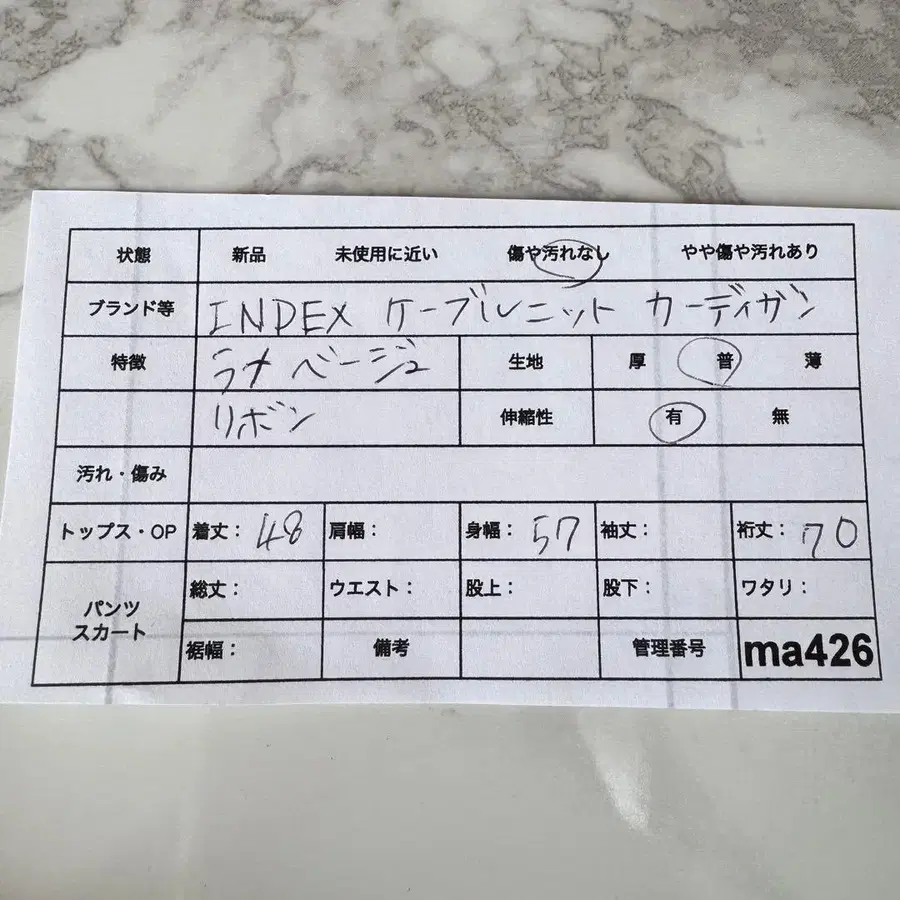 状態 新品 未使用に近い 傷や汚れなし やや傷や汚れあり
ブランド等 INDEX ケーブルニット カーディガン
特徴 ラメ ベージュ 生地 厚 普 薄
リボン 伸縮性 有 無
汚れ・傷み
トップス・OP 着丈： 48 肩幅： 身幅： 57 袖丈： 裄丈： 70
パンツ スカート 総丈： ウエスト： 股上： 股下： ワタリ：
裾幅： 備考 管理番号 ma426